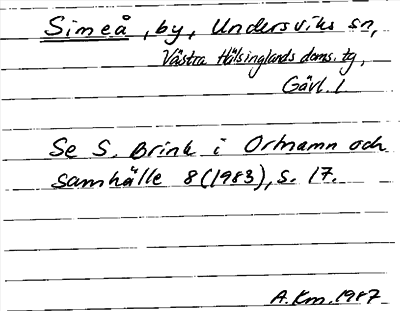 Simeå, by, Undersviks sn,
Västra Hälsinglands doms. tg,
Gävl. l
Se S. Brink i Ortnamn och
samhälle 8 (1983), s. 17.
A.Km. 1987